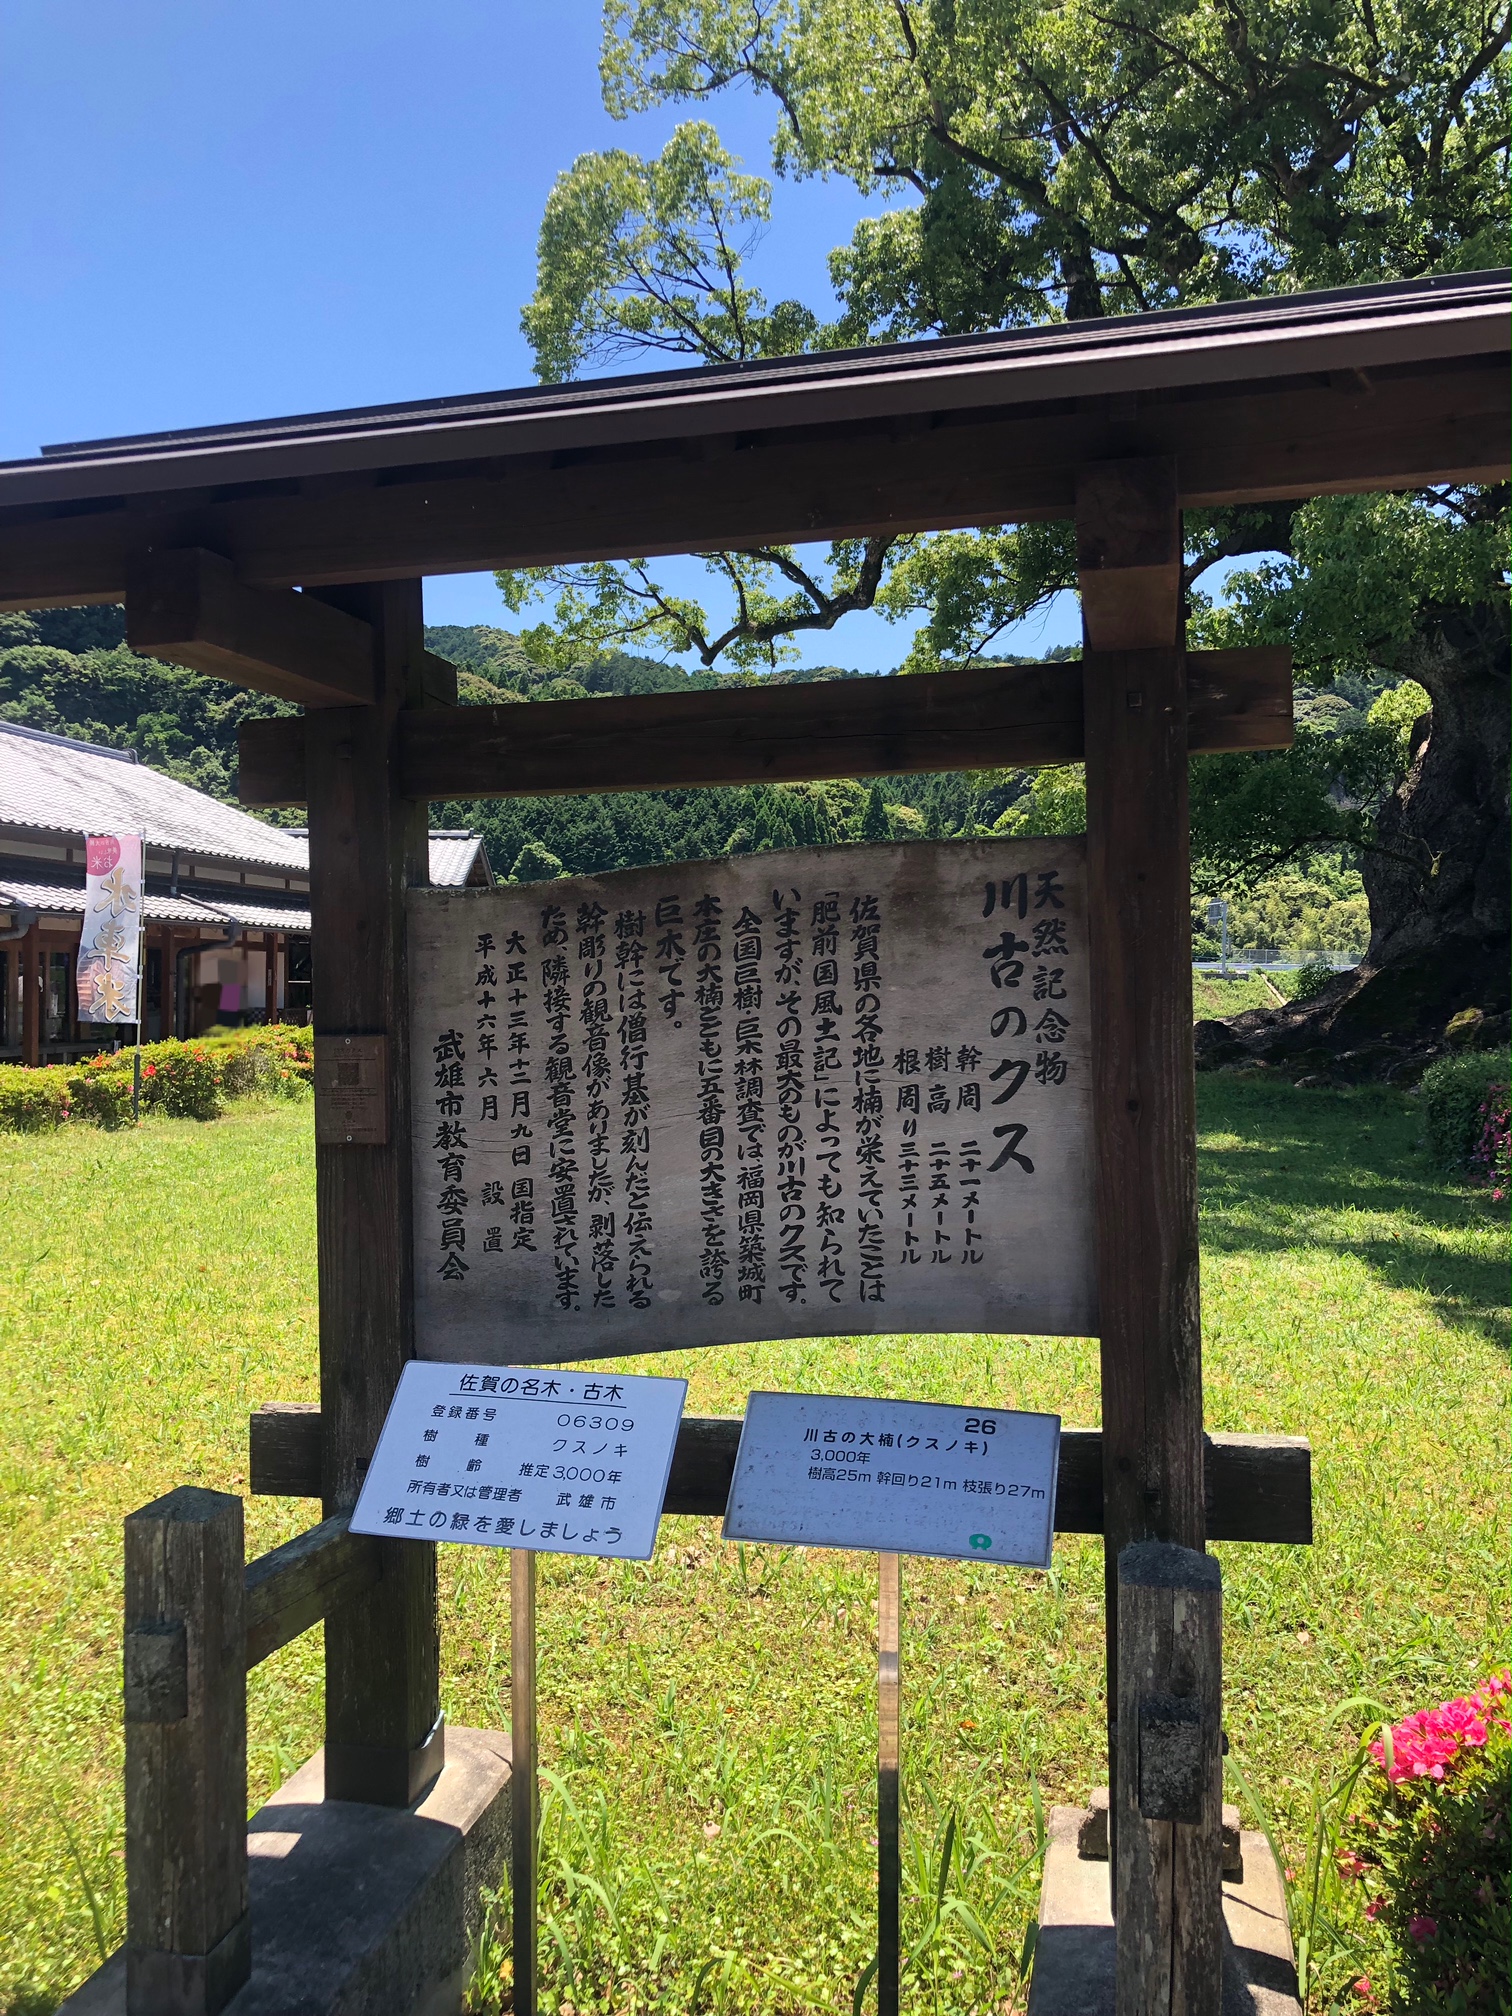 天然記念物
川古のクス
幹周 二十一メートル
樹高 二十五メートル
根周り 三十三メートル
佐賀県の各地に楠が栄えていたことは
「肥前国風土記」によっても知られて
いますが、その最大のものが川古のクスです。
全国巨樹・巨木林調査では、福岡県築城町
本庄の大楠とともに五番目の大きさを誇る
巨木です。
樹幹には僧行基が刻んだと伝えられる
幹彫りの観音像がありましたが、剥落した
ため、隣接する観音堂に安置されています。
大正十三年十二月九日国指定
平成十六年六月 設置
武雄市教育委員会
佐賀の名木・古木
登録番号 06309
樹種 クスノキ
樹齢 推定3,000年
所有者又は管理者 武雄市
郷土の緑を愛しましょう
26
川古の大楠(クスノキ)
3,000年
樹高25m 幹回り21m 枝張り27m
お米
水車米